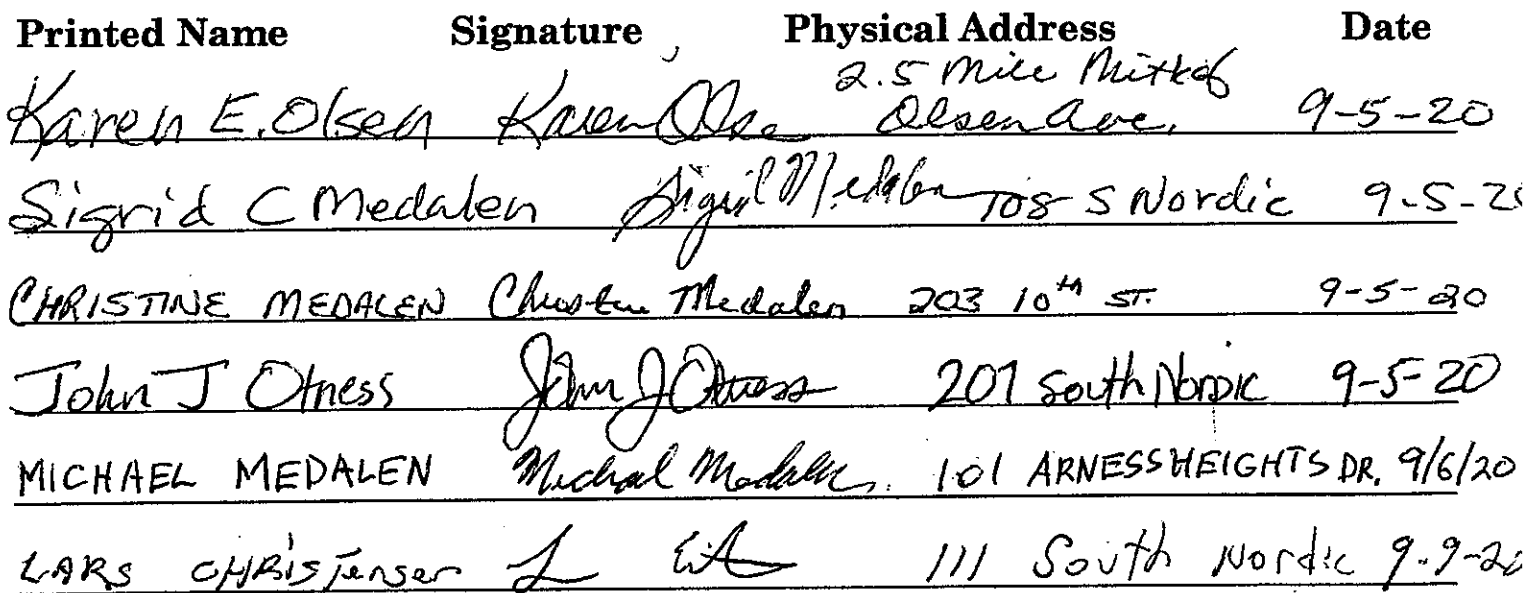 Printed Name Signature Physical Address Date
2.5 mile Mitkof
Karen E. Olsen Karen Olse Olsen Ave. 9-5-20
Sigrid C Medalen Sigrid Medalen 708 S Nordic 9-5-20
CHRISTINE MEDALEN Christine Medalen 203 10th ST. 9-5-20
John J Otness John J Otness 201 South Nordic 9-5-20
MICHAEL MEDALEN Michael Medalen 101 ARNESS HEIGHTS DR. 9/6/20
LARS CHRISTENSEN 111 South Nordic 9-9-20